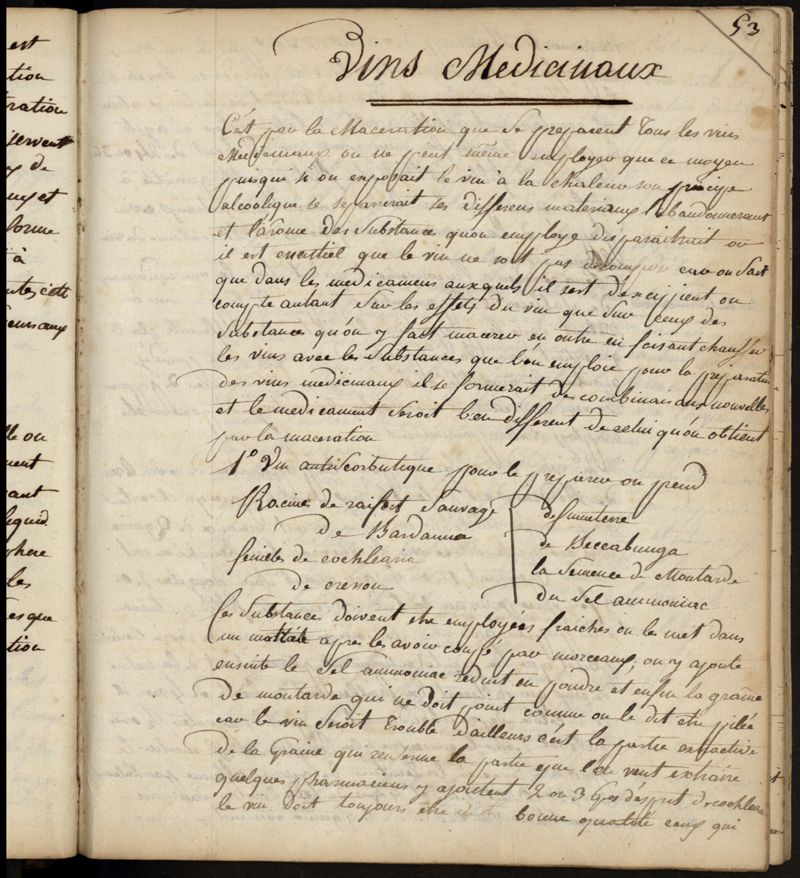 est
tion
ration
servent
de
et
forme
à
toutes cette
le on
ment
ant
liquid
phere
les
es que
tion
53
Vins Medicinaux
C'est par la Maceration que se preparent Tous les vins
Medicinaux on ne peut même employer que ce moyen
puisque si on exposait le vin à la chaleur son principe
alcoolique se separerait ses differens materiaux l'abandonneraient
et l'arôme des Substances qu'on employe disparaitrait ou
il est essentiel que le vin ne soit pas decomposé car on sait
que dans les medicamens auxquels il sert d'excipient on
compte autant sur les effets du vin que sur ceux des
Substances qu'on y fait macerer en outre en faisant chauffer
les vins avec les Substances que l'on emploie pour la preparation
des vins medicinaux il se formerait des combinaisons nouvelles
et le medicament seroit bien different de celui qu'on obtient
par la maceration
1º Vin antiscorbutique pour le preparer on prend
Racine de raifort Sauvage
de Bardanne
feuilles de cochlearia
de cresson
de fumeterre
de Beccabunga
la Semence de Moutarde
du Sel ammoniac
Ces Substances doivent etre employées fraiches on les met dans
un apres les avoir coupé par morceaux, on y ajoute
ensuite le Sel ammoniac reduit en poudre et enfin la graine
de moutarde qui ne doit point comme on le dit etre pilée
car le vin Seroit Trouble d'ailleurs c'est la partie extractive
de la Graine qui renferme la partie que l'on veut extraire
quelques pharmaciens y ajoutent 2 ou 3 d'esprit de cochlearia
le vin doit toujours etre de bonne qualité ceux qui